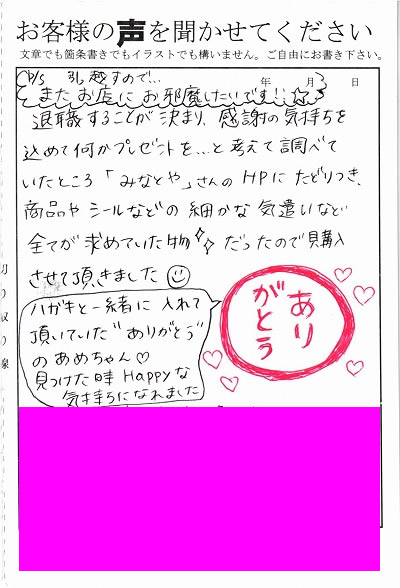 お客様の声を聞かせてください
文章でも箇条書きでもイラストでも構いません。ご自由にお書き下さい。
年 月 日
P/S 引越すので…
またお店にお邪魔したいです!!
退職することが決まり、感謝の気持ちを
込めて何かプレゼントを…と考えて調べて
いたところ「みなとや」さんのHPにたどりつき、
商品やシールなどの細かな気遣いなど
全てが求めていた物だったので購入
させて頂きました
ハガキと一緒に入れて
頂いていた"ありがとう"
のあめちゃん♡
見つけた時Happyな
気持ちになれました
あり
がとう
切り取り線